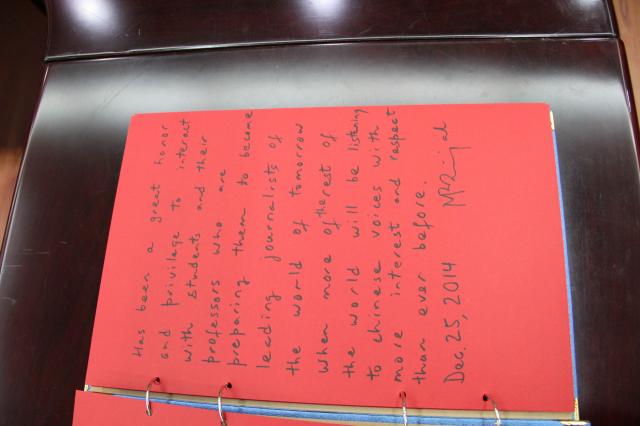 Has been a great honor
and privilege to interact
with students and their
professors who are
preparing them to become
leading journalists of
the world of tomorrow
when more of the rest of
the world will be listening
to chinese voices with
more interest and respect
than ever before.
Dec. 25, 2014